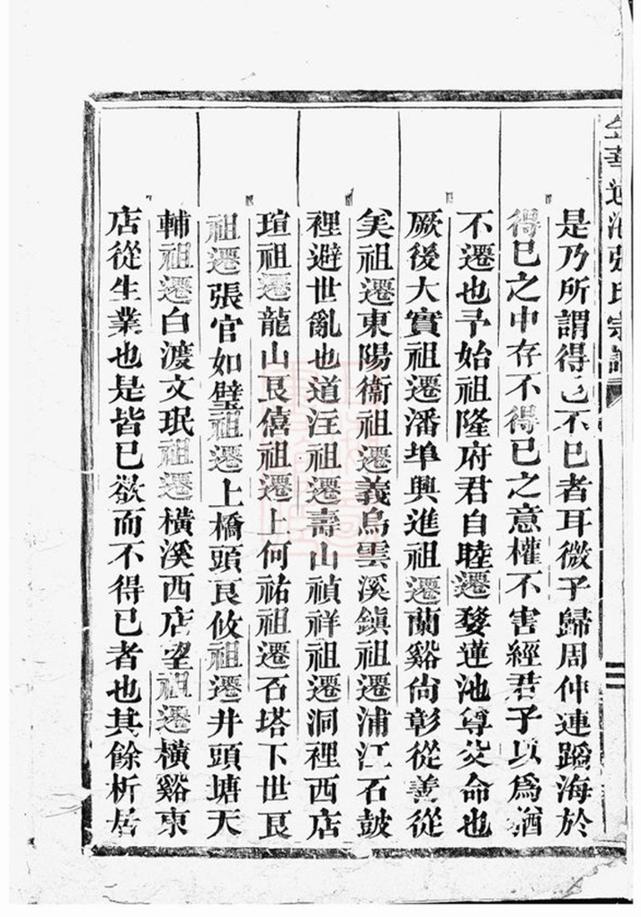 金華蓮池張氏宗譜
是乃所謂得已不已者耳微子歸周仲連蹈海於
得已之中存不得已之意權不害經君子以為猶
不遷也予始祖隆府君自睦遷婺蓮池尊父命也
厥後大實祖遷潘埠興進祖遷蘭谿尚彰從善從
美祖遷東陽衞祖遷義烏雲溪鎮祖遷浦江石鼓
裡避世亂也道泩祖遷壽山禎祥祖遷洞裡西店
瑄祖遷龍山艮僖祖遷上何祐祖遷石塔下世艮
祖遷張官如璧祖遷上橋頭艮攸祖遷井頭塘天
輔祖遷白渡文珉祖遷橫溪西店望祖遷橫谿東
店從生業也是皆已欲而不得已者也其餘析居